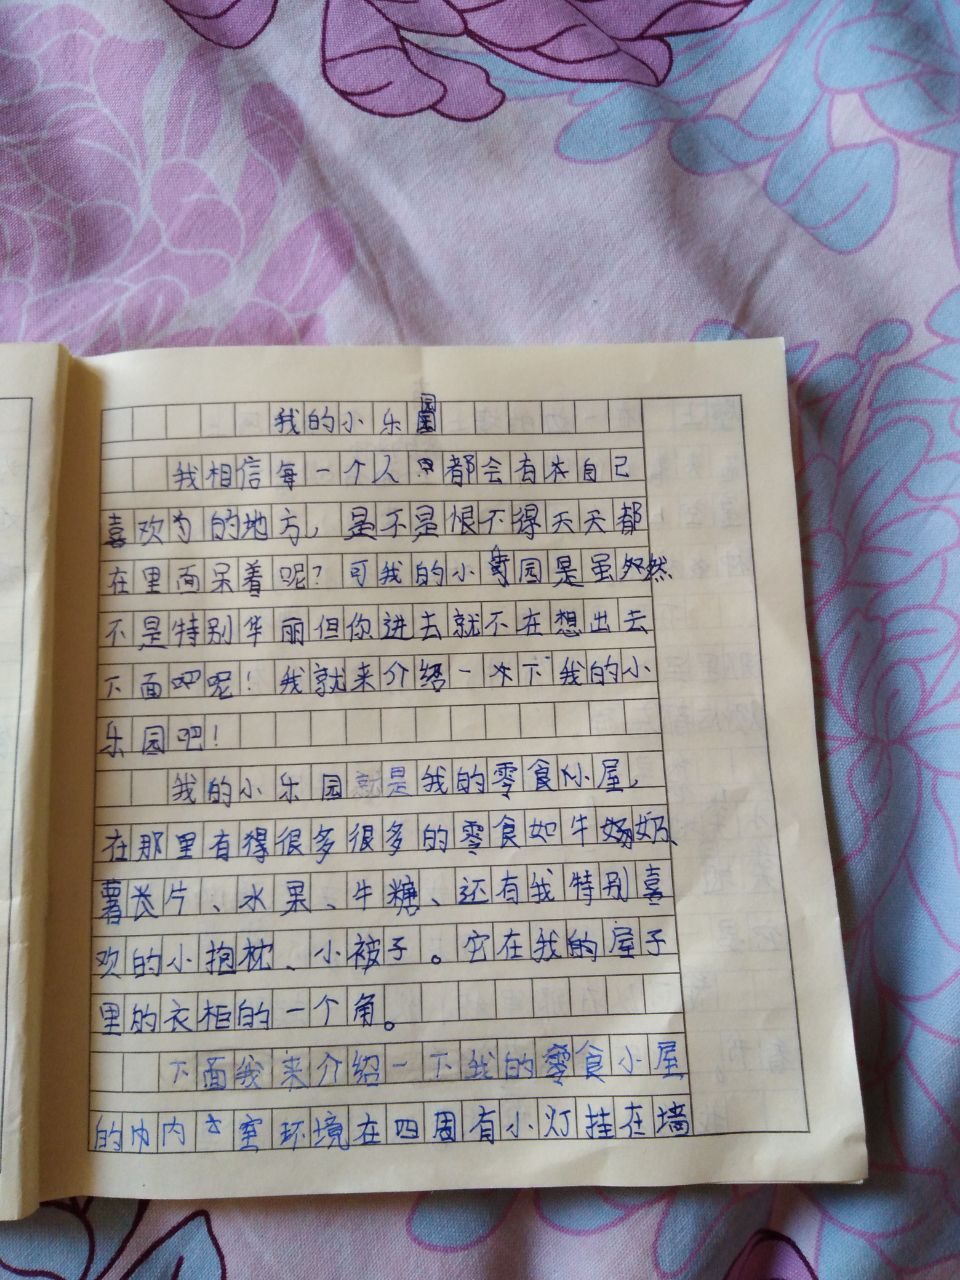 我的小乐园
我相信每一个人都会有本自己
喜欢为的地方，是不是恨不得天天都
在里面呆着呢？可我的小园是虽然
不是特别华丽但你进去就不在想出去
下面吧呢！我就来介绍一次下我的小
乐园吧！
我的小乐园就是我的零食小屋，
在那里有得很多很多的零食如牛奶、
薯长片、水果、牛糖、还有我特别喜
欢的小抱枕、小被子。它在我的屋子
里的衣柜的一个角。
下面我来介绍一下我的零食小屋
的内室环境在四周有小灯挂在墙